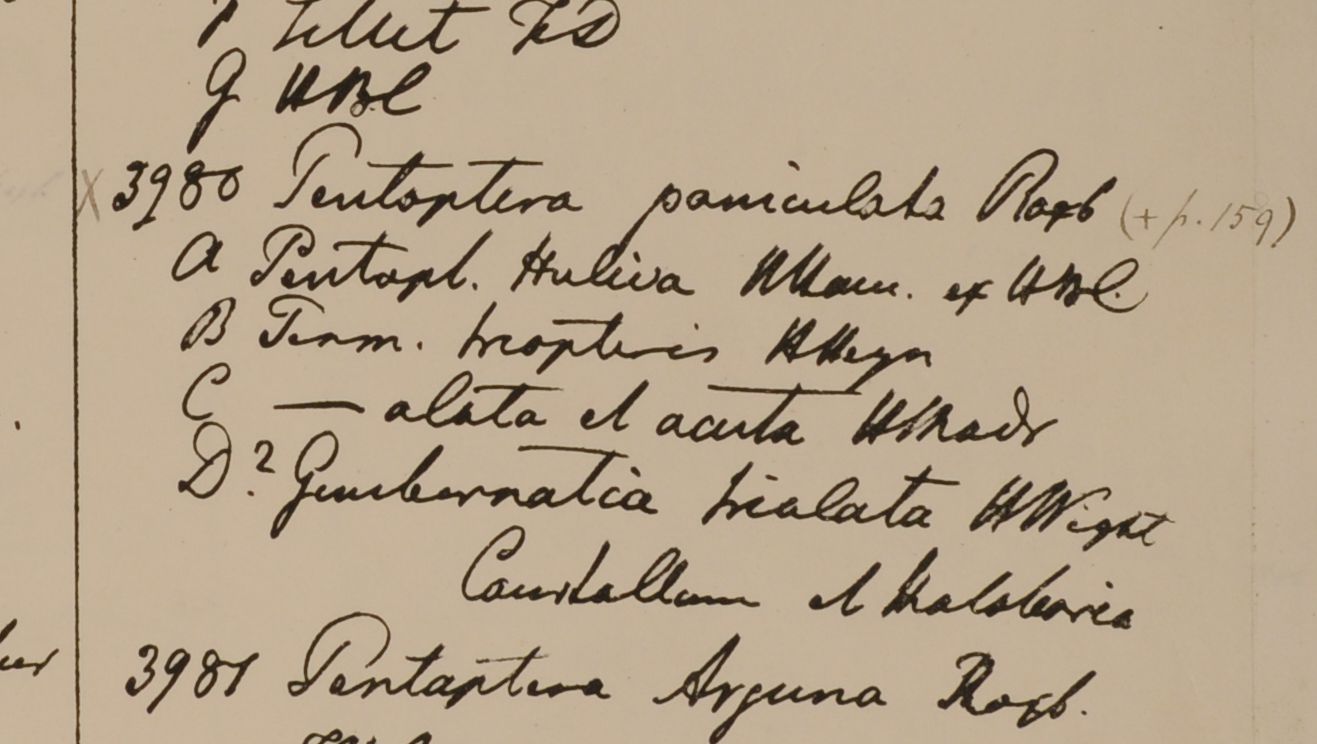 F Sillet FD
G HBC
X 3980 Pentaptera paniculata Roxb (+ p. 159)
A Pentapt. Huliva HHam. ex HBC.
B Term. triopteris HHeyn
C — alata et acuta HMadr
D? Gimbernatia trialata HWight
Courtallum et Malabaria
3981 Pentaptera Arjuna Roxb.